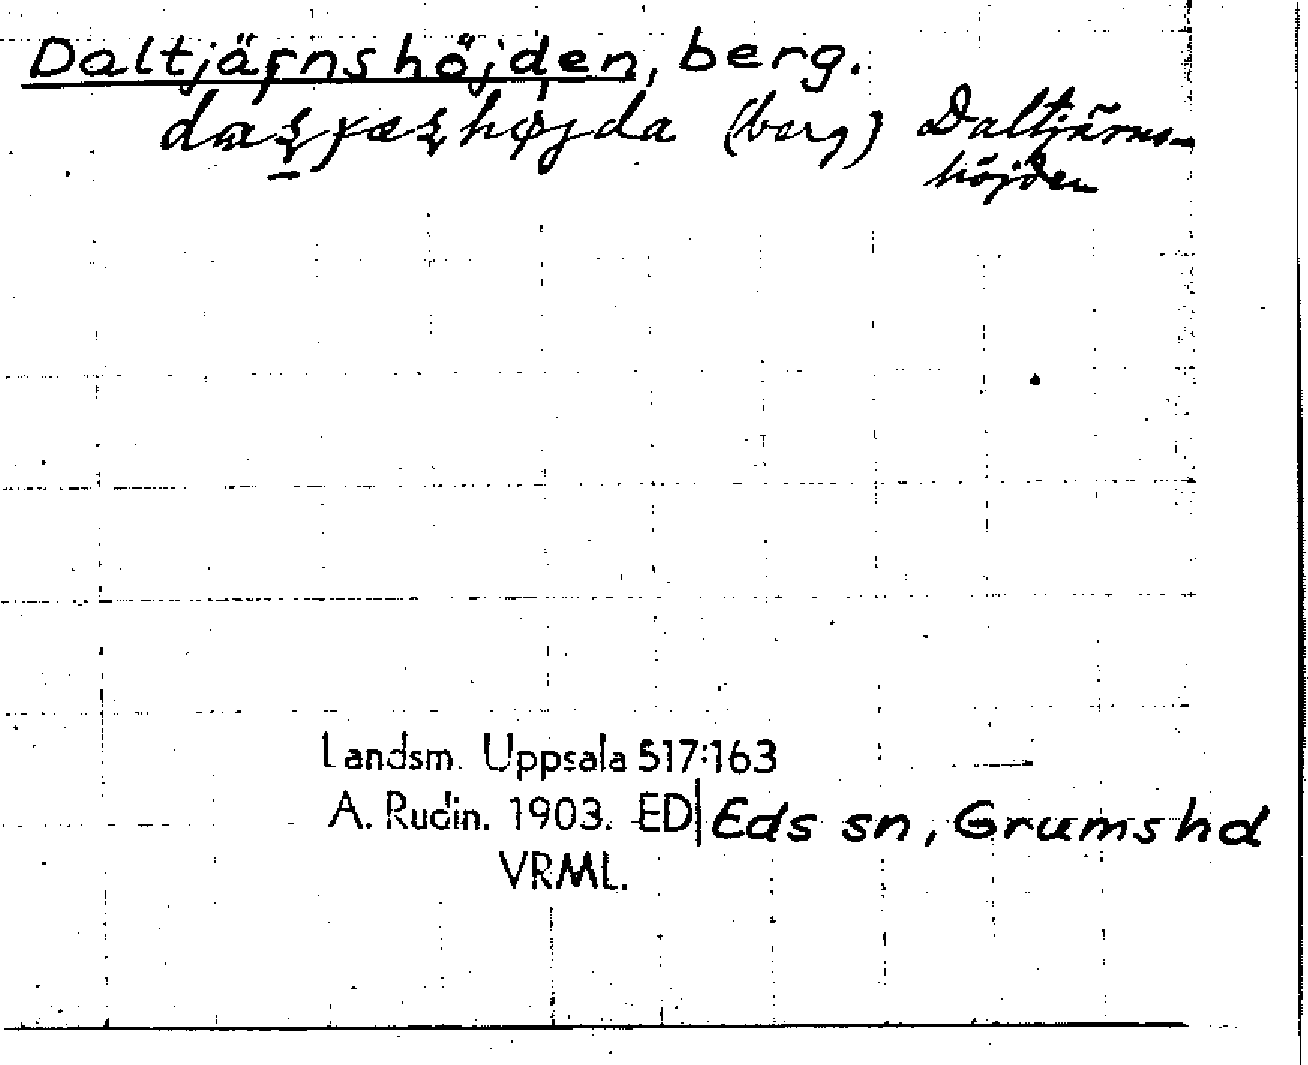 Daltjärnshöjden, berg.
(berg) Daltjärns-
höjden
Landsm. Uppsala 517:163
A. Rudin. 1903. ED Eds sn, Grums hd
VRML.